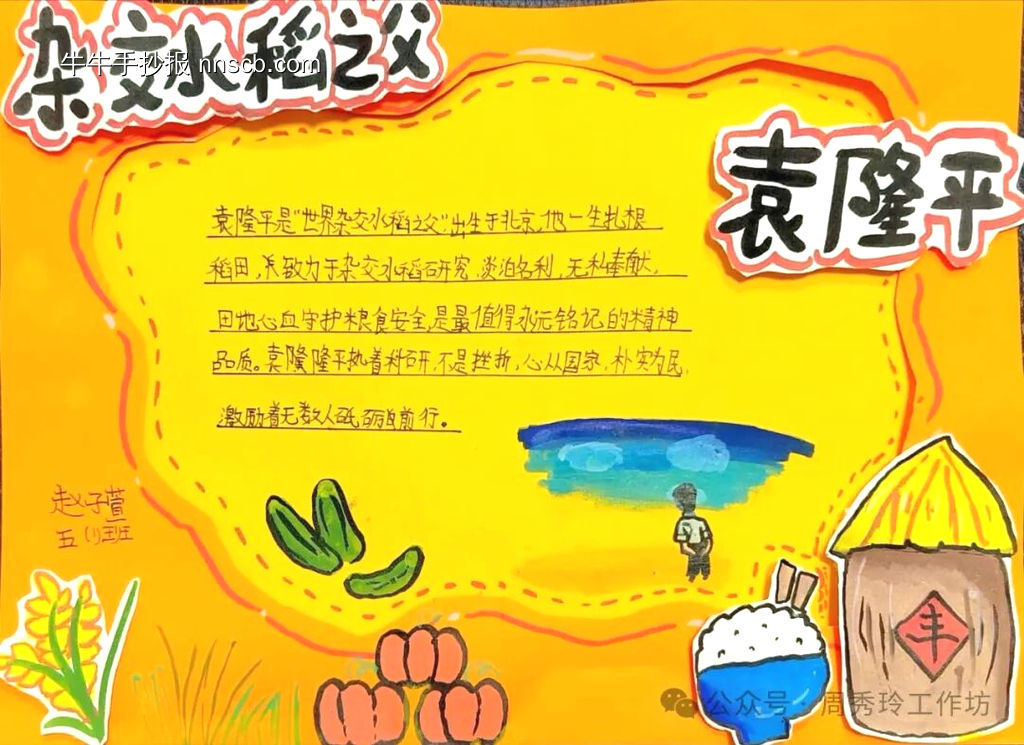 杂交水稻之父
牛牛手抄报 nnscb.com
袁隆平
袁隆平是"世界杂交水稻之父",出生于北京,他一生扎根
稻田,长致力于杂交水稻研究,淡泊名利,无私奉献,
用心血守护粮食安全,是最值得永远铭记的精神
品质。袁隆平执着科研,不是挫折,心从国家,朴实为民,
激励着无数人砥砺前行。
赵子萱
五(1)班
丰
公众号·周秀玲工作坊